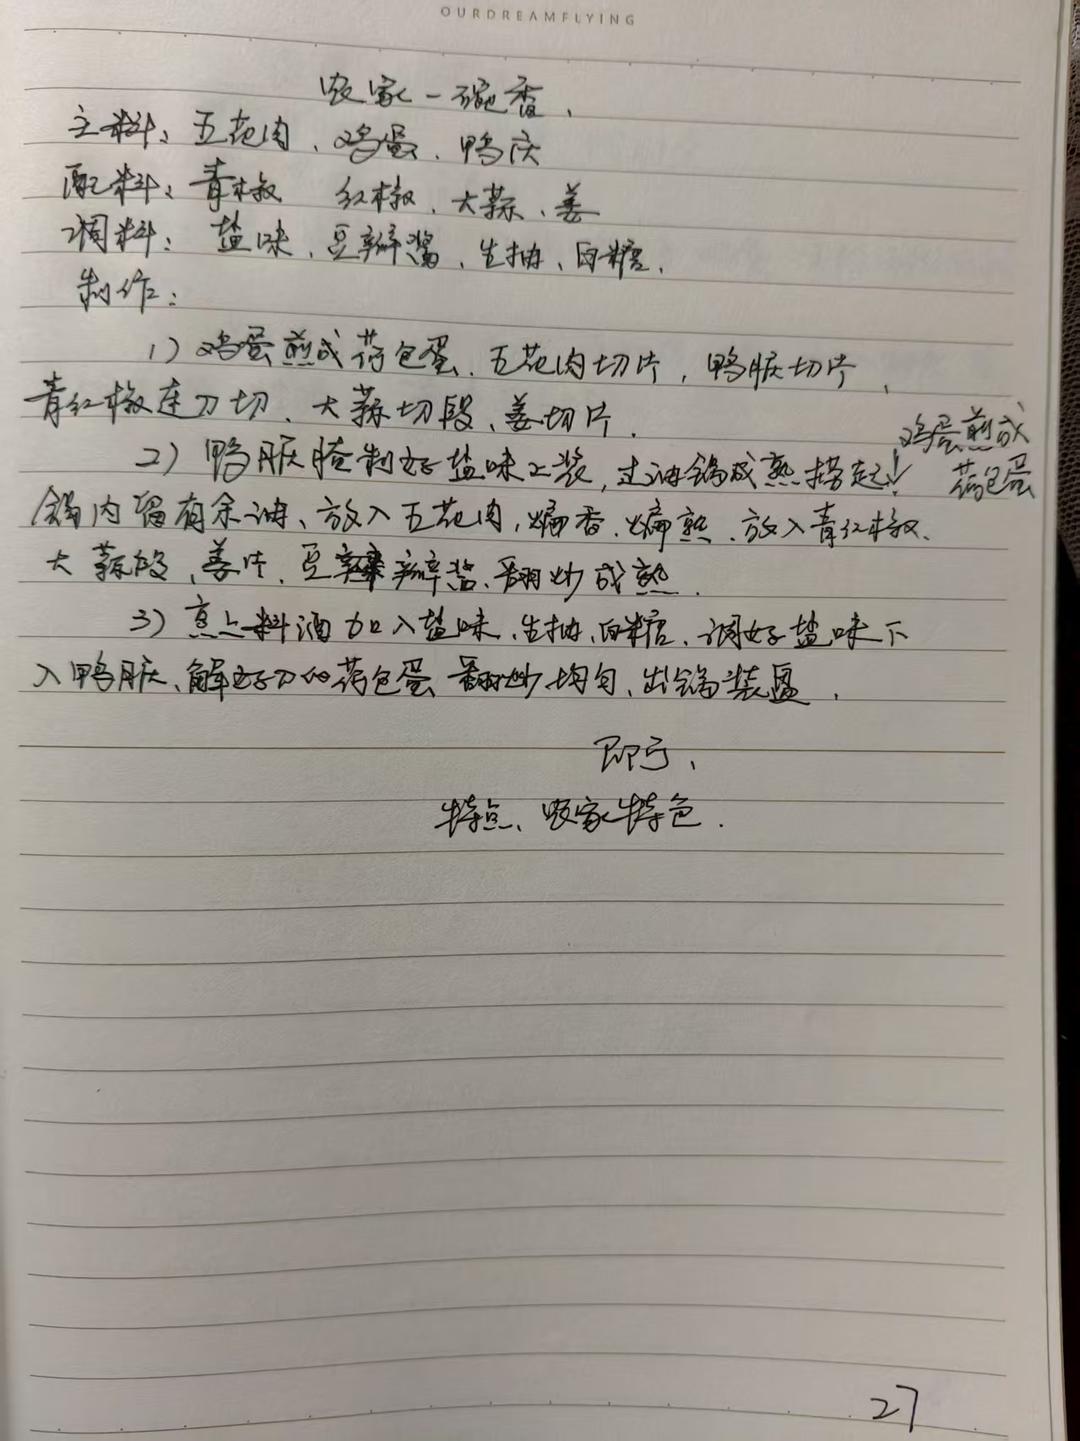 OURDREAMFLYING
农家一碗香、
主料：五花肉、鸡蛋、鸭庆
配料：青椒 红椒、大蒜、姜
调料：盐味、豆瓣酱、生抽、白糖、
制作：
1）鸡蛋煎成荷包蛋、五花肉切片，鸭脤切片，
青红椒连刀切、大蒜切段、姜切片．
2）鸭脤腌制好盐味上浆，过油锅成熟捞起！鸡蛋煎成荷包蛋
锅内留有余油、放入五花肉，煸香、煸熟、放入青红椒、
大蒜段、姜片、豆瓣酱、翻炒成熟．
3）烹上料酒加入盐味、生抽、白糖、调好盐味下
入鸭脤、解好刀的荷包蛋 翻炒均匀、出锅装盘．
即亏、
特点、农家特色．
27